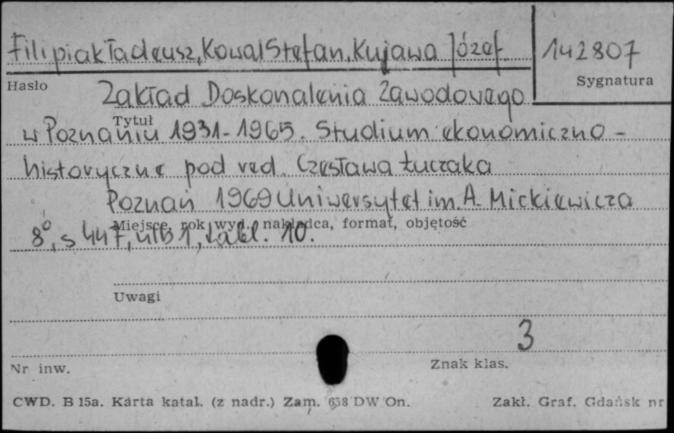 Filipiak Tadeusz, Kowal Stefan, Kujawa Józef 142807
Hasło Sygnatura
Zakład Doskonalenia Zawodowego
Tytuł
w Poznaniu 1931-1965. Studium ekonomiczno-
historyczne pod red. Czesława Łuczaka
Poznań 1969 Uniwersytet im. A. Mickiewicza
Miejsce, rok wyd., nakładca, format, objętość
8°, s 447, nlb 1, tabl. 10.
Uwagi
3
Nr inw. Znak klas.
CWD. B 15a. Karta katal. (z nadr.) Zam. 638 DW On. Zakł. Graf. Gdańsk nr